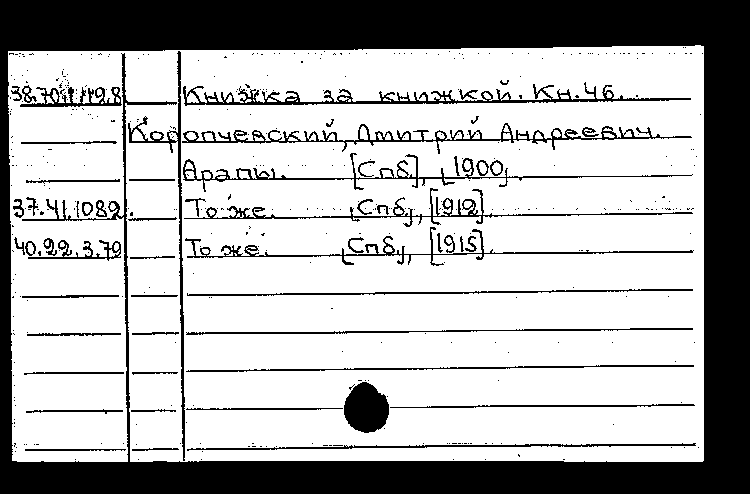 38.70.1/19.8 Книжка за книжкой. Кн. 46.
Коропчевский, Дмитрий Андреевич.
Арапы. [Спб], [1900].
37.41.1082. То же. [Спб.], [1912].
40.22.3.79 То же. [Спб.], [1915].